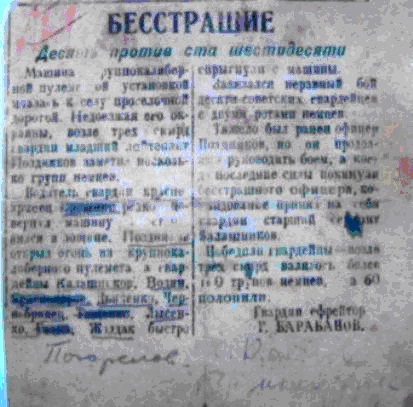 БЕССТРАШИЕ
Десять против ста шестидесяти
Машина крупнокалибер-
ной пулеметной установкой
мчалась к селу проселочной
дорогой. Недоезжая его ок-
раины, возле трех скирд
гвардии младший лейтенант
Поздняков заметил несколь-
ко групп немцев.
Водитель гвардии красно-
армеец резко
вернул машину
в лощине.
открыл огонь из крупнока-
либерного пулемета, а гвар-
дейцы Калашников, Волин,
Дьяченко, Чер-
Лысен-
ко, Жолдак быстро
спрыгнули с машины.
Завязался неравный бой
десяти советских гвардейцев
с двумя ротами немцев.
Тяжело был ранен офицер
Поздняков, но он продол-
руководить боем, а ког-
да последние силы покинули
бесстрашного офицера, ко-
мандование принял на себя
гвардии старший сержант
Балашников.
Победили гвардейцы возле
трех скирд валялось более
100 трупов немцев, а 60
полонили.
Гвардии ефрейтор
Г. БАРАБАНОВ.